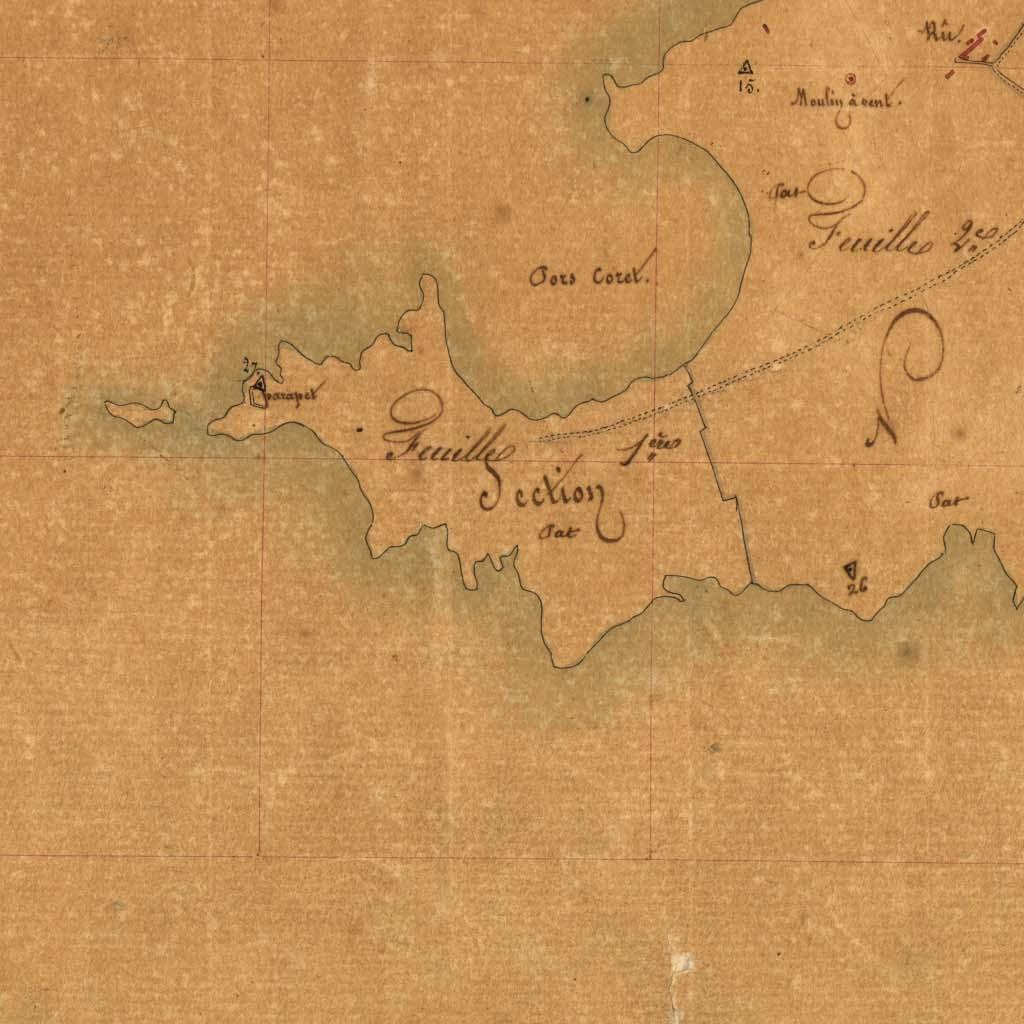 Rû.
15.
Moulin à vent.
Pat
Feuille 2.e
Pors Coret.
27
parapet
N
Feuille 1.ère
Section
Pat
Pat
26